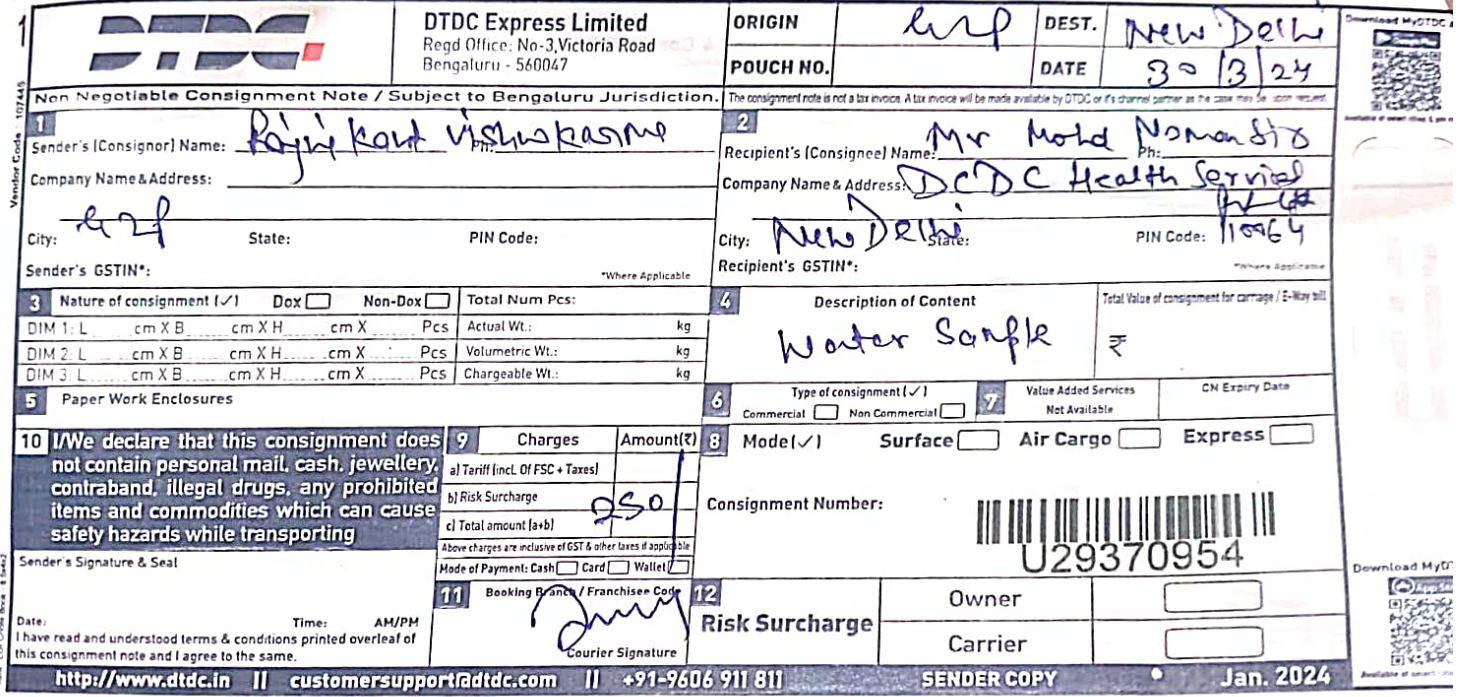 1
DTDC
DTDC Express Limited
Regd Office: No-3,Victoria Road
Bengaluru - 560047
ORIGIN
DEST. New Delhi
POUCH NO.
DATE 30/3/24
Download MyDTDC
Vendor Code : 107445
Non Negotiable Consignment Note / Subject to Bengaluru Jurisdiction.
The consignment note is not a tax invoice. A tax invoice will be made available by DTDC or it's channel partner as the case may be, upon request.
1
Sender's (Consignor) Name: Rajnikant Vishwakarma
Company Name & Address:
City: State: PIN Code:
Sender's GSTIN*:
*Where Applicable
2
Recipient's (Consignee) Name: Mr Mohd Noman Sir Ph:
Company Name & Address: DCDC Health Services
Pvt Ltd
City: New Delhi State: PIN Code:
Recipient's GSTIN*:
*Where Applicable
3 Nature of consignment (✓) Dox Non-Dox
DIM 1: L cm X B cm X H cm X Pcs
DIM 2: L cm X B cm X H cm X Pcs
DIM 3: L cm X B cm X H cm X Pcs
Total Num Pcs:
Actual Wt.: kg
Volumetric Wt.: kg
Chargeable Wt.: kg
4 Description of Content
Water Sample
Total Value of consignment for carriage / E-Way bill
₹
5 Paper Work Enclosures
6 Type of consignment (✓)
Commercial Non Commercial
7 Value Added Services
Not Available
CN Expiry Date
10 I/We declare that this consignment does
not contain personal mail, cash, jewellery,
contraband, illegal drugs, any prohibited
items and commodities which can cause
safety hazards while transporting
Sender's Signature & Seal
Date: Time: AM/PM
I have read and understood terms & conditions printed overleaf of
this consignment note and I agree to the same.
9 Charges Amount(₹)
a) Tariff (incl. Of FSC + Taxes)
b) Risk Surcharge 250/
c) Total amount (a+b)
Above charges are inclusive of GST & other taxes if applicable
Mode of Payment: Cash Card Wallet
11 Booking Branch / Franchisee Code
Courier Signature
8 Mode(✓) Surface Air Cargo Express
Consignment Number:
U29370954
12
Risk Surcharge
Owner
Carrier
Download MyDT
App Sto
http://www.dtdc.in || customersupport@dtdc.com || +91-9606 911 811 SENDER COPY • Jan. 2024